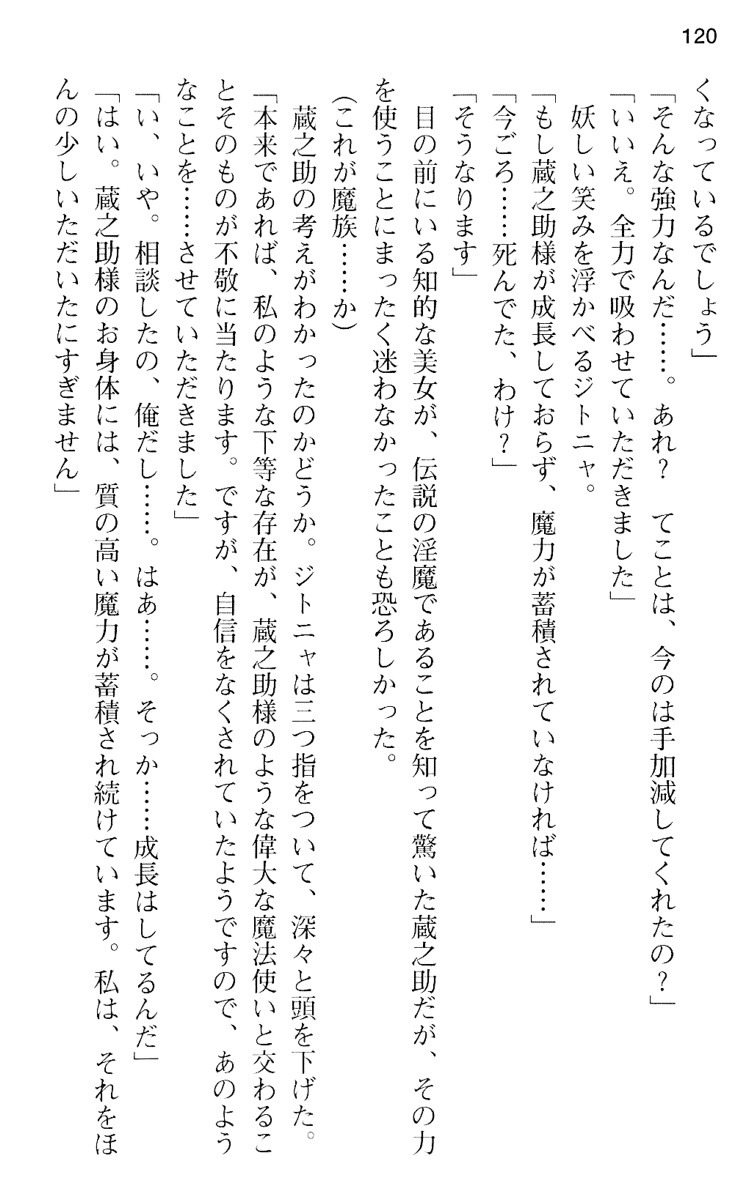 120
くなっているでしょう」
「そんな強力なんだ……。あれ？　てことは、今のは手加減してくれたの？」
「いいえ。全力で吸わせていただきました」
妖しい笑みを浮かべるジトニャ。
「もし蔵之助様が成長しておらず、魔力が蓄積されていなければ……」
「今ごろ……死んでた、わけ？」
「そうなります」
目の前にいる知的な美女が、伝説の淫魔であることを知って驚いた蔵之助だが、その力
を使うことにまったく迷わなかったことも恐ろしかった。
（これが魔族……か）
蔵之助の考えがわかったのかどうか。ジトニャは三つ指をついて、深々と頭を下げた。
「本来であれば、私のような下等な存在が、蔵之助様のような偉大な魔法使いと交わるこ
とそのものが不敬に当たります。ですが、自信をなくされていたようですので、あのよう
なことを……させていただきました」
「い、いや。相談したの、俺だし……。はあ……。そっか……成長はしてるんだ」
「はい。蔵之助様のお身体には、質の高い魔力が蓄積され続けています。私は、それをほ
んの少しいただいたにすぎません」